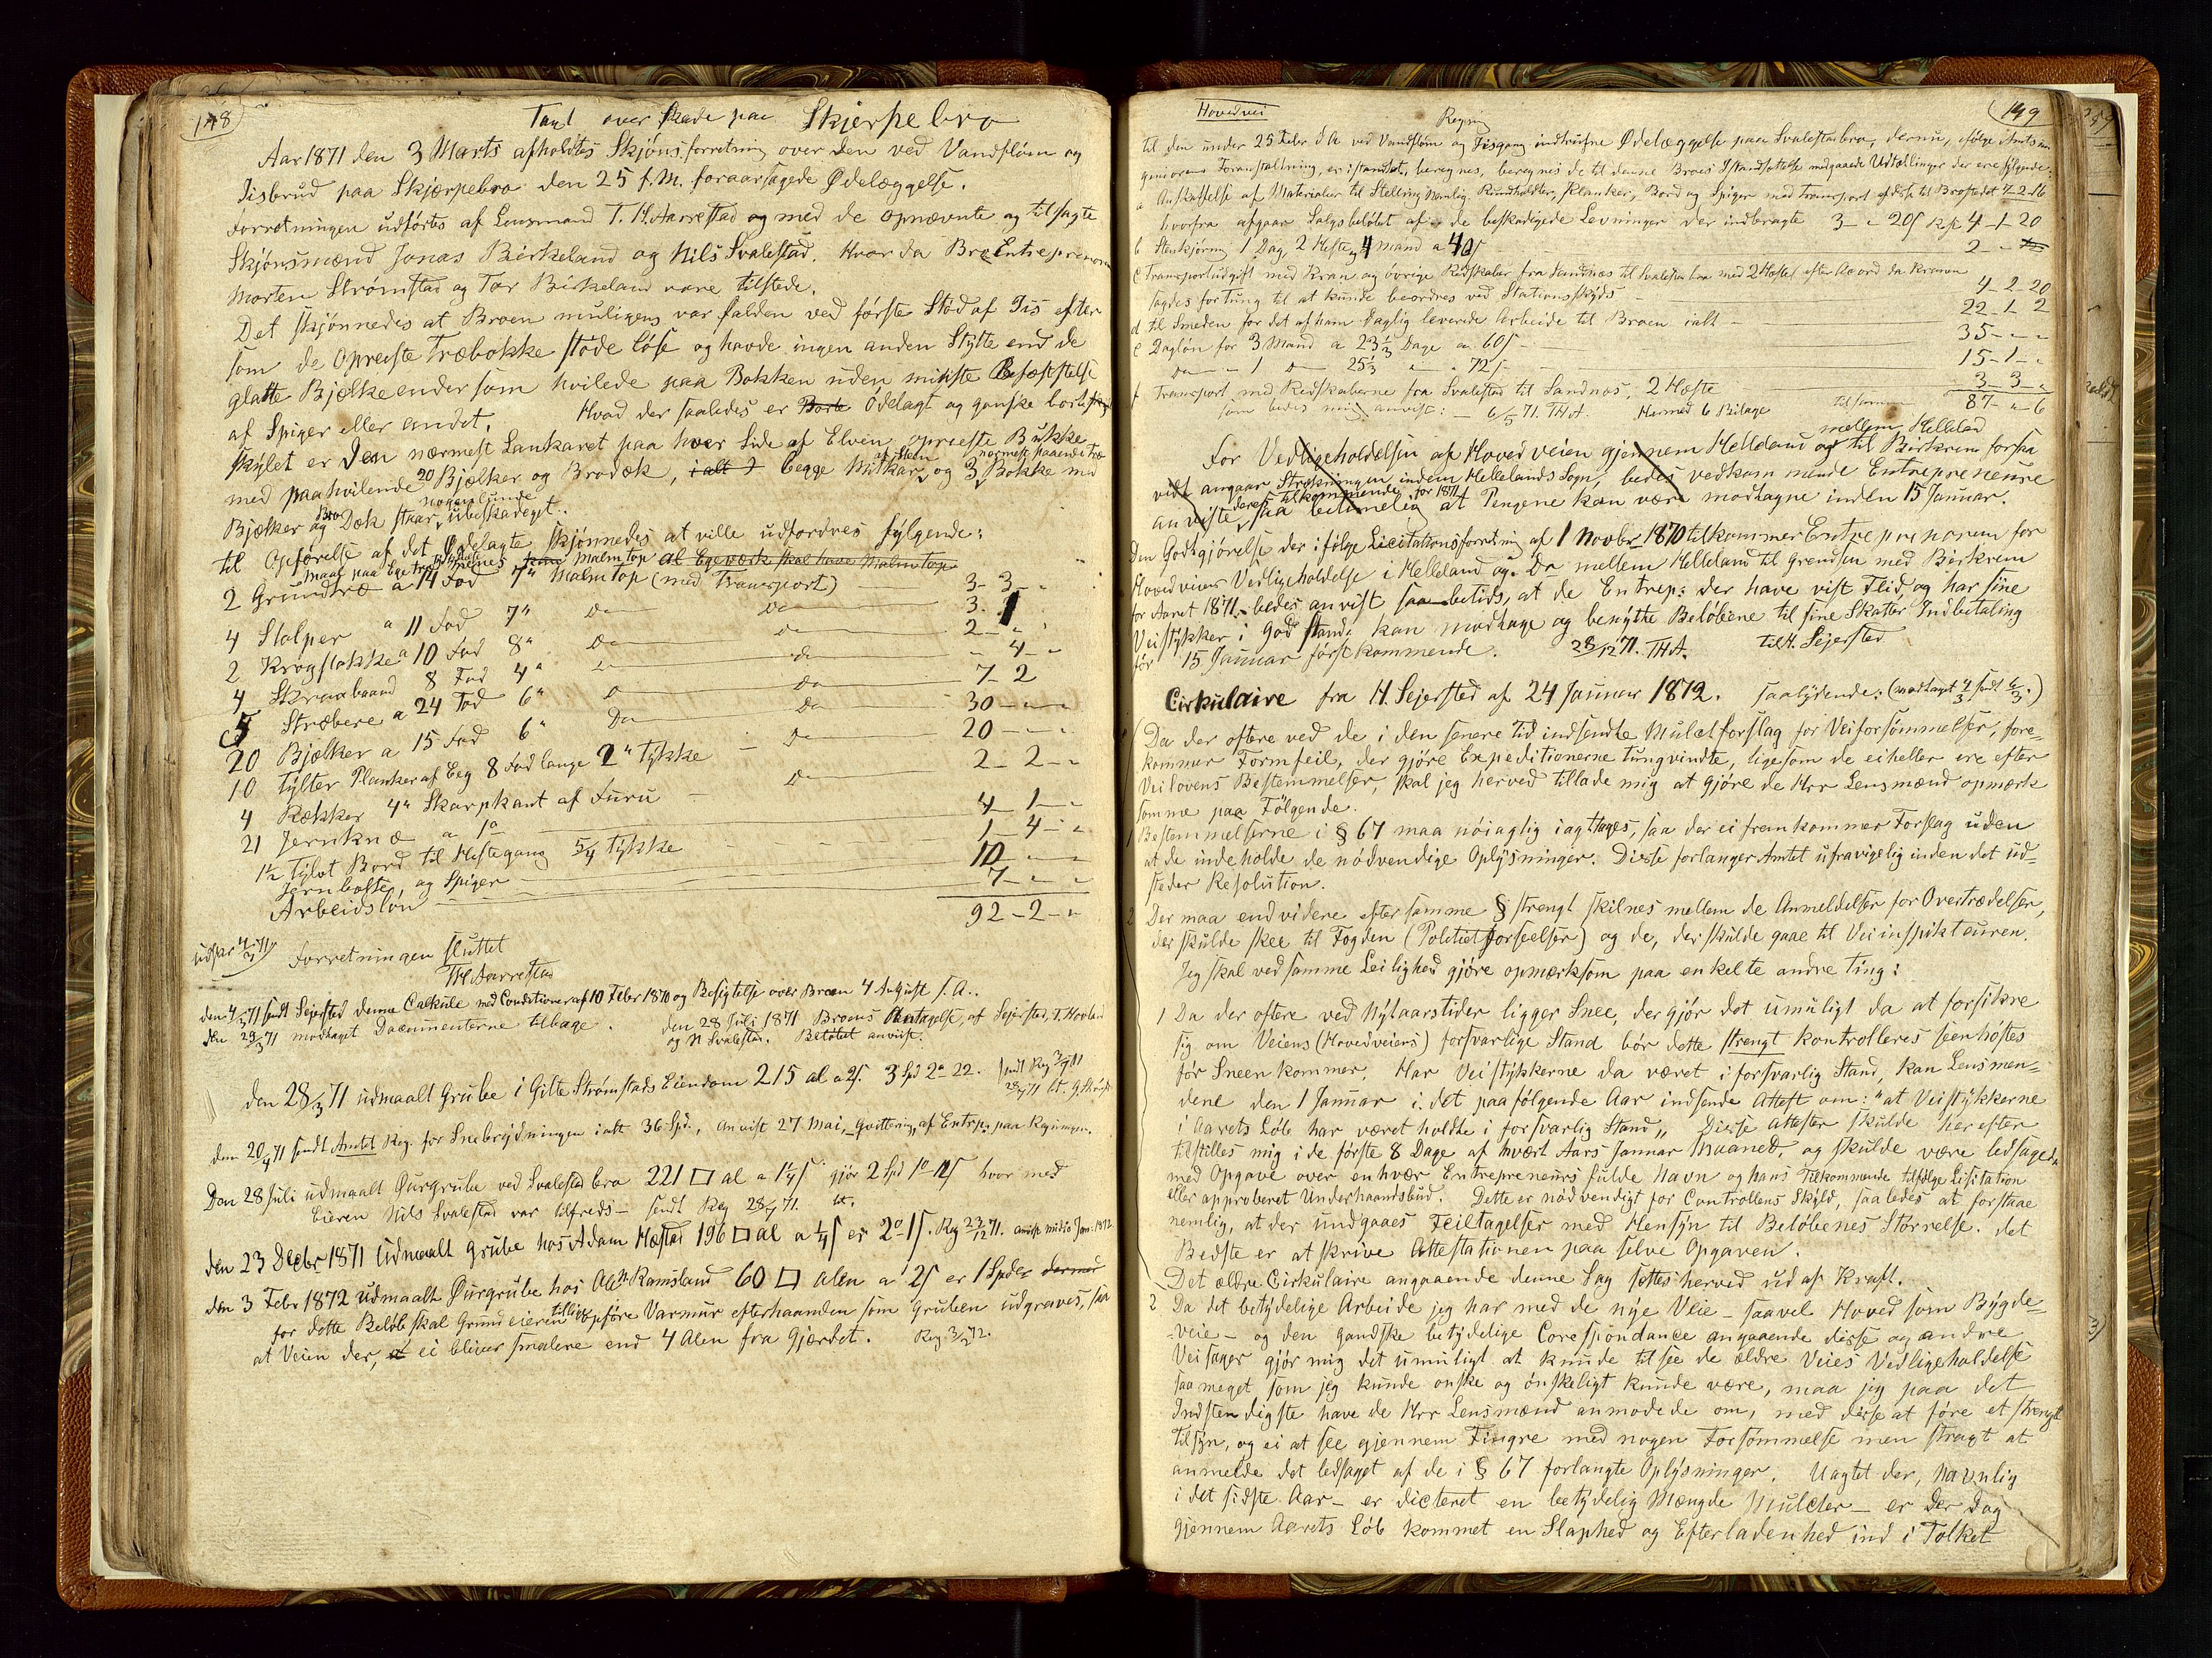 148
Taxt over Skade paa Skjerpebro
Aar 1871 den 3 Marts afholdtes Skjönsforretning over den ved Vandflöm og
Iisbrud paa Skjærpebro den 25 f.M. foraarsagede Ødelæggelse.
Forretningen udförtes af Lensmand T. H. Aarrestad og med de opnævnte og tilsagte
Skjönsmænd Jonas Birkeland og Nils Svalestad. Hvor da Bro Entreprenörn
Morten Strömstad og Tor Birkeland vare tilstede.
Det skjönnedes at Broen muligens var falden ved förste Stöd af Iis efter
som de opreiste Træbokke stode löse og havde ingen anden Stytte end de
glatte Bjelkeender som hvilede paa Bokken uden mindste Befæstelse
af Spiger eller andet. Hvad der saaledes er Borte ödelagt og ganske bortsk
skylet er Den nærmest Lankaret paa hver Side af Elven opreiste Bukke
med paahvilende 20 Bjelker og Brodæk, ialt 7 begge Midtkar af Steen og 3 nærmest staaende Træ Bokke med
Bjelker og Bro Dæk staar nogenlunde ubeskadeget.
til Opförelse af det Ødelagte skjönnedes at ville udfordres fylgende:
2 Grundtræ a 14 Fod 7" Malmtop (med Transport) 3- 3 -
4 Stolper a 11 Fod 7" Do Do 3. 1
2 Krogstokke a 10 Fod 8" Do Do 2 - -
4 Skraabaand 8 Fod 4" Do - 4 -
5 Stræbere a 24 Fod 6" Do Do 7 2
20 Bjelker a 15 Fod 6" Do Do 30 - -
10 Tylter Planker af Eeg 8 Fod lange 2" Tykke 20 - -
4 Rækker 4" Skarpkant af Furu - Do 2 - 2 -
21 Jernknæ a 1a 4 - 1 -
1½ Tylvt Bord til Hestegang 5/4 Tykke 1 - 4 -
Jernbolte, og Spiger 10 - -
Arbeidslön 7 - -
92 - 2 -
udskr 4/3 71
Forretningen sluttet
TH Aarrestad
den 4/3 71 sendt Sejersted denne Calkule med Conditioner af 10 Febr 1870 og Besigtelse over Broen 4 August s. A..
den 29/3 71 modtaget Documenterne tilbage. den 28 Juli 1871 Broens Antagelse, af Sejersted, T. Hovland
og N Svalestad. Belöbet anviist.
den 28/3 71 udmaalt Grube i Gitle Strömstads Eiendom 215 al a 2s. 3 Spd 2 a 22.
den 20/4 71 sendt Amtet Reg. for Snebrydningen ialt 36 Spd., anvist 27 Mai, qvittering af Entrep: paa Regningen.
Den 28 Juli udmaalt Ørgrube ved Svalestad bro 221 □ al a 1¼s gjör 2 Spd 1a 12s hvor med
Eieren Nils Svalestad var tilfreds - sendt Reg 28/7 71.
den 23 Decbr 1871 Udmaalt Grube hos Adam Hæstad 196 □ al a ¼s er 2a 1s. Reg 23/12 71. anvist midio Jan. 1872
den 3 Febr 1872 udmaalt Ørgrube hos Ramsland 60 □ alen a 2s er 1 Spd dermed
for dette Belöb skal Grundeieren tillige opföre Varmur efterhaanden som Gruben udgraves, saa
at Veien der, at ei bliver smalere end 4 Alen fra Gjærdet. Reg. 3/2 72.
149
Hovedvei
Regning
til den under 25 Feber d A ved Vandflöm og Iisgang indtrufne Ødelæggelse paa Svalestadbro, dernu, efölge Amtsin
geniörens Foranstaltning, er istandsat, beregnes, beregnes de til denne Broes Istandsættelse medgaaede Udtællinger der ere fylgende:
a Anskaffelse af Materialer til Stelling Nemlig. Rundholdter, Planker, Bord og Spiger med Transport
hvorfra afgaar Salgsbelöbet af de beskadigede Levninger der indbragte 3 - - 20s 4-1-20
b Stenkjöring 1 Dag, 2 Heste, 4 Mand a 40s 2 - -
c Transportudgift med Kran og övrige Redskaber fra Sandnæs til Svalestadbro med 2 Heste efter Acord da Kranen
sagdes for Tung til at kunde beordres ved Stationsskyds 4-2-20
d til Smeden for det af ham Daglig leverede Arbeide til Broen ialt - 22-1-2
e Daglön for 3 Mand a 23⅓ Dage a 60s - 35 - -
Do - 1 Do 25⅓ - - 72s - 15-1-
f Transport med Redskaberne fra Svalestad til Sandnæs, 2 Heste 3-3-
som bedes mig anvist: - 6/5 71. THA. Hermed 6 Bilage tilsammen 87 - 6
For Vedligeholdelsen af Hovedveien gjennem Helleland og mellem Helleland til Birkrem forsaa
vidt angaar Strækningen indem Hellelands Sogn, bedes vedkommende Entrepreneure
anviste deres tilkommende for 1871 saa betimelig at Pengene kan være modtagne inden 15 Januar.
Den Godtgjörelse der ifölge Licitationsforretning af 1 Novbr 1870 tilkommer Entreprenoren for
Hovedveiens Vedligeholdelse i Helleland og Do mellem Helleland til Grendsen med Birkrem
for Aaret 1871. bedes anvist saa betids, at de Entrep: der have vist Flid, og har sine
Veistykker i god Stand, kan modtage og benytte Belöbene til sine Skatter Indbetaling
för 15 Januar först kommende. 28/12 71. THA. til H. Sejersted
Cirkulaire fra H. Sejersted af 24 Januar 1872. saalydende:
Da der oftere ved de i den senere Tid indsendte Mulctforslag for Veiforsömmelser, fore-
kommer Formfeil, der gjöre Expeditionerne tungvindte, ligesom de eiheller ere efter
Veilovens Bestemmelser, skal jeg herved tillade mig at gjöre de Hrr Lensmænd opmærk
somme paa Fölgende.
1 Bestemmelserne i § 67 maa nöiagtig iagttages, saa der ei fremkommer Forslag uden
at de indeholde de nödvendige Oplysninger. Disse forlanger Amtet ufravigelig inden det ud-
steder Resolution.
2 Der maa endvidere efter samme § strengt skilnes mellem de Anmeldelser for Overtrædelser,
der skulde skee til Fogden (Politietforseelser) og de, der skulde gaae til Veiinspekteuren.
Jeg skal ved samme Leilighed gjöre opmærksom paa enkelte andre Ting:
1 Da der oftere ved Nytaarstider ligger Snee, der gjör det umuligt da at forsikre
sig om Veiens (Hovedveiens) forsvarlige Stand bör dette strengt kontrolleres seenhöstes
för Sneen kommer. Har Veistykkerne da været i forsvarlig Stand, kan Lensmen-
dene den 1 Januar i det paafölgende Aar indsende Attest om: "at Veistykkerne
i Aarets Löb har været holdte i forsvarlig Stand„ Disse Attester skulde herefter
tilstilles mig i de förste 8 Dage af hvært Aars Januar Maaned, og skulde være ledsagede
med Opgave over enhvær Entrepreneurs fulde Navn og hans Tilkommende tilfölge Lisitation
eller approberet Underhaandsbud. Dette er nödvendigt for Controllens Skyld, saaledes at forstaae
nemlig, at der undgaaes Feiltagelser med Hensyn til Belöbenes Störrelse. det
Bedste er at skrive Attestationen paa selve Opgaven.
Det ældre Cirkulaire angaaende denne Sag settes herved ud af Kraft.
2 Da det betydelige Arbeide jeg har med de nye Veie - saavel Hoved som Bygde-
-veie - og den gandske betydelige Corespondance angaaende disse og andre
Veisager gjör mig det umuligt at kunde tilsee de ældre Veies Vedligeholdelse
saa meget som jeg kunde onske og önskeligt kunde være, maa jeg paa det
Indstendigste have de Hrr Lensmænd anmodede om, med disse at före et strengt
tilsyn, og ei at see gjennem Fingre med nogen Forsömmelse men stragt at
anmelde det ledsaget af de i § 67 forlangte Oplysninger. Uagtet der, navnlig
i det sidste Aar - er dicteret en betydelig Mængde Mulcter - er der dog
gjennem Aarets Löb kommet en Slaphed og Efterladenhed ind i Folket